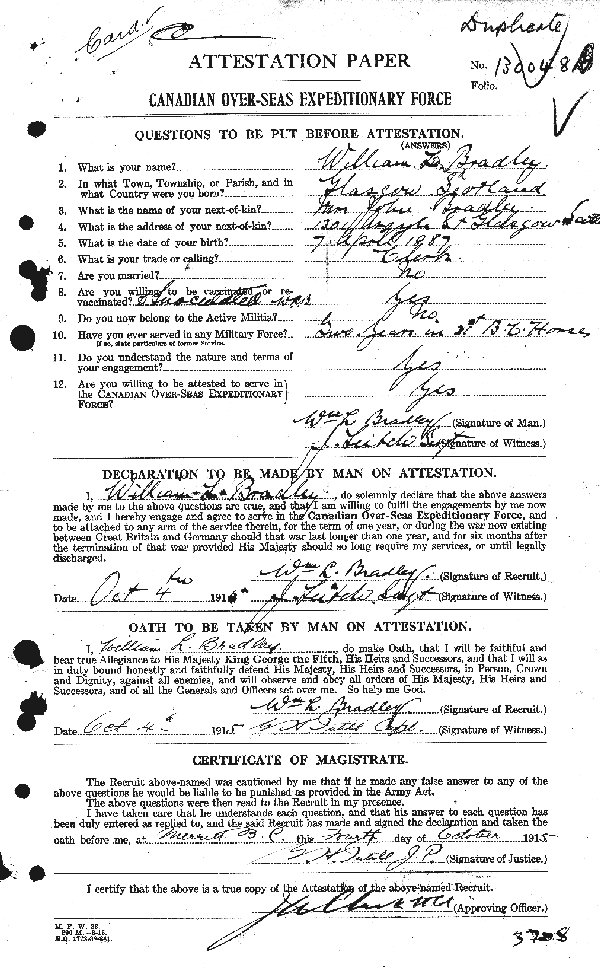 Card
Duplicate
ATTESTATION PAPER
No.
Folio.
CANADIAN OVER-SEAS EXPEDITIONARY FORCE
QUESTIONS TO BE PUT BEFORE ATTESTATION.
(ANSWERS)
1. What is your name? William L. Bradley.
2. In what Town, Township, or Parish, and in
what Country were you born? Glasgow Scotland
3. What is the name of your next-of-kin? Mrs John Bradley
4. What is the address of your next-of-kin? Argyle St Glasgow
5. What is the date of your birth? 7 April 1887
6. What is your trade or calling? Clerk
7. Are you married? no
8. Are you willing to be vaccinated or re-
vaccinated? Yes
9. Do you now belong to the Active Militia? no
10. Have you ever served in any Military Force? Two Years in B.C. Horse
If so, state particulars of former Service.
11. Do you understand the nature and terms of
your engagement? Yes
12. Are you willing to be attested to serve in
the CANADIAN OVER-SEAS EXPEDITIONARY Yes
FORCE?
Wm L Bradley (Signature of Man.)
J. Leitch Sergt (Signature of Witness.)
DECLARATION TO BE MADE BY MAN ON ATTESTATION.
I, William L. Bradley, do solemnly declare that the above answers
made by me to the above questions are true, and that I am willing to fulfil the engagements by me now
made, and I hereby engage and agree to serve in the Canadian Over-Seas Expeditionary Force, and
to be attached to any arm of the service therein, for the term of one year, or during the war now existing
between Great Britain and Germany should that war last longer than one year, and for six months after
the termination of that war provided His Majesty should so long require my services, or until legally
discharged.
Wm L. Bradley. (Signature of Recruit.)
Date Oct 4th 1915 J. Leitch Sergt (Signature of Witness.)
OATH TO BE TAKEN BY MAN ON ATTESTATION.
I, William L. Bradley, do make Oath, that I will be faithful and
bear true Allegiance to His Majesty King George the Fifth, His Heirs and Successors, and that I will as
in duty bound honestly and faithfully defend His Majesty, His Heirs and Successors, in Person, Crown
and Dignity, against all enemies, and will observe and obey all orders of His Majesty, His Heirs and
Successors, and of all the Generals and Officers set over me. So help me God.
Wm L Bradley (Signature of Recruit.)
Date Oct 4th 1915 Capt. (Signature of Witness.)
CERTIFICATE OF MAGISTRATE.
The Recruit above-named was cautioned by me that if he made any false answer to any of the
above questions he would be liable to be punished as provided in the Army Act.
The above questions were then read to the Recruit in my presence.
I have taken care that he understands each question, and that his answer to each question has
been duly entered as replied to, and the said Recruit has made and signed the declaration and taken the
oath before me, at Merritt B.C. this Fourth day of October 1915
J.P. (Signature of Justice.)
I certify that the above is a true copy of the Attestation of the above-named Recruit.
(Approving Officer.)
M. F. W. 23
H.Q.